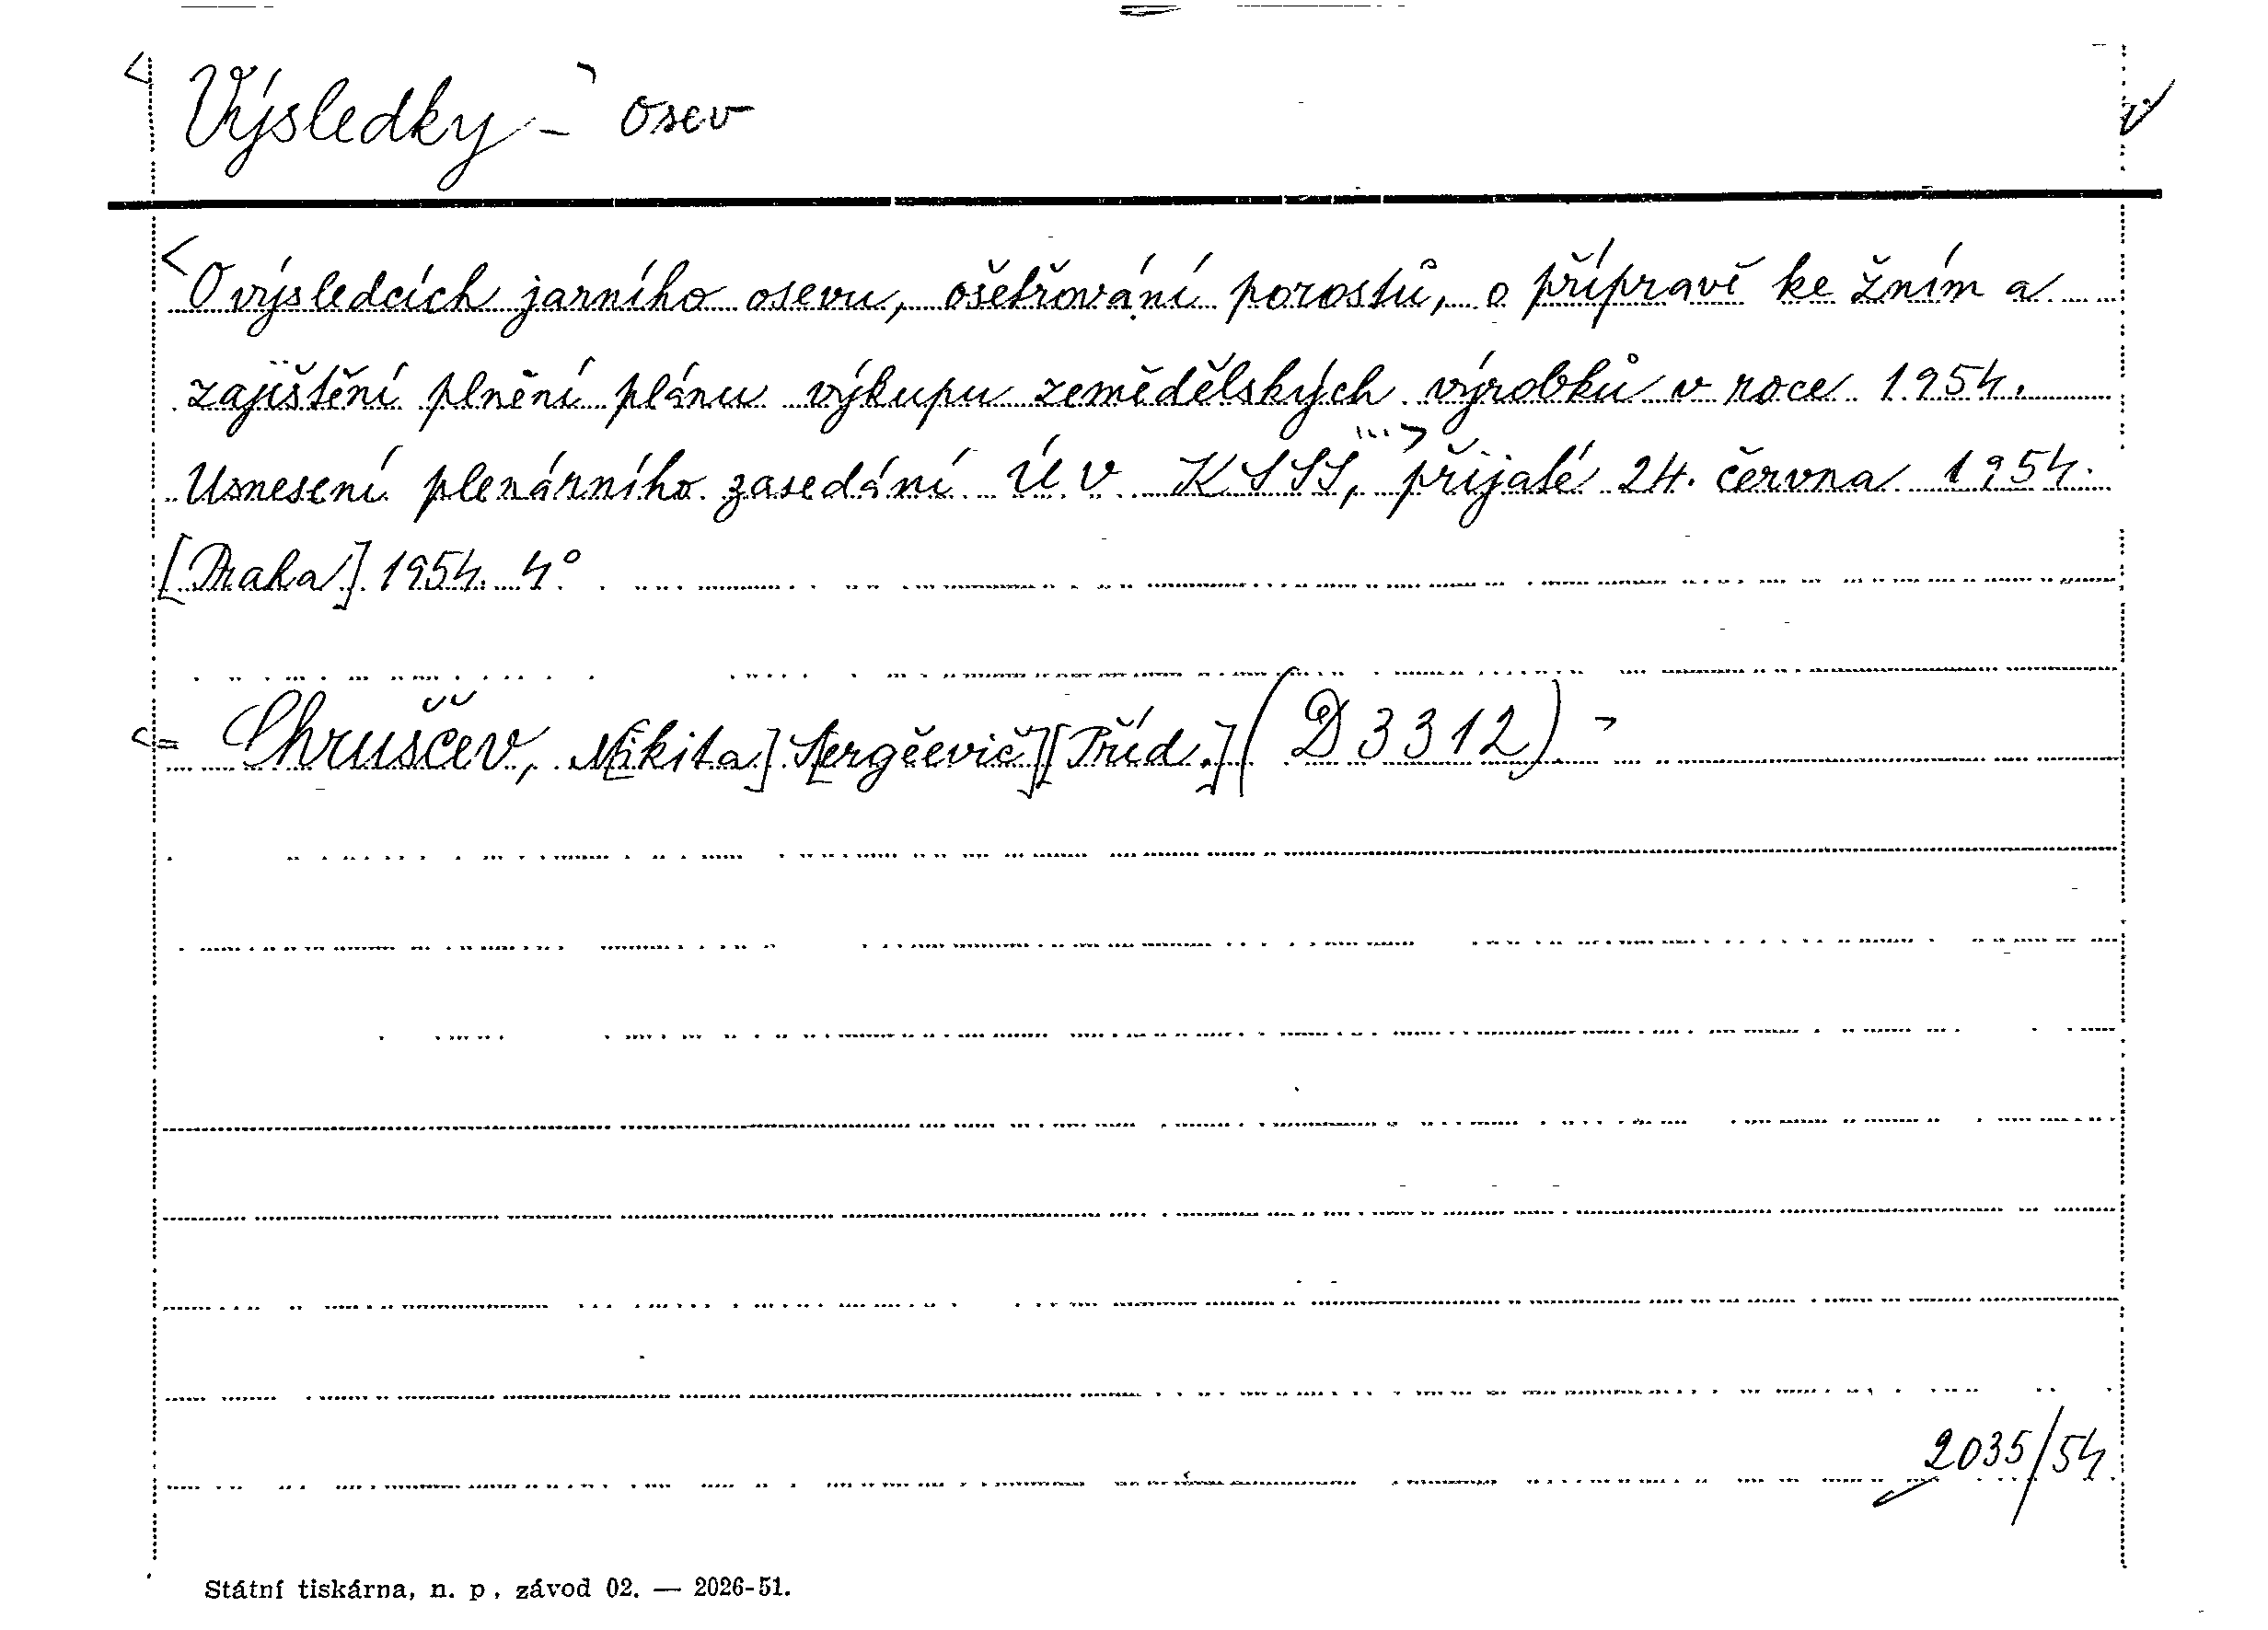 < Výsledky - osev >
< O výsledcích jarního osevu, ošetřování porostů, o přípravě ke žním a
zajištění plnění plánu výkupu zemědělských výrobků v roce 1954.
Usnesení plenárního zasedání ÚV KSSS, ...> přijaté 24. června 1954.
[Praha] 1954. 4°
<= Chruščev, N[ikita] S[ergěevič] [Příd.] (D 3312) >
2035/54
Státní tiskárna, n. p., závod 02. — 2026-51.